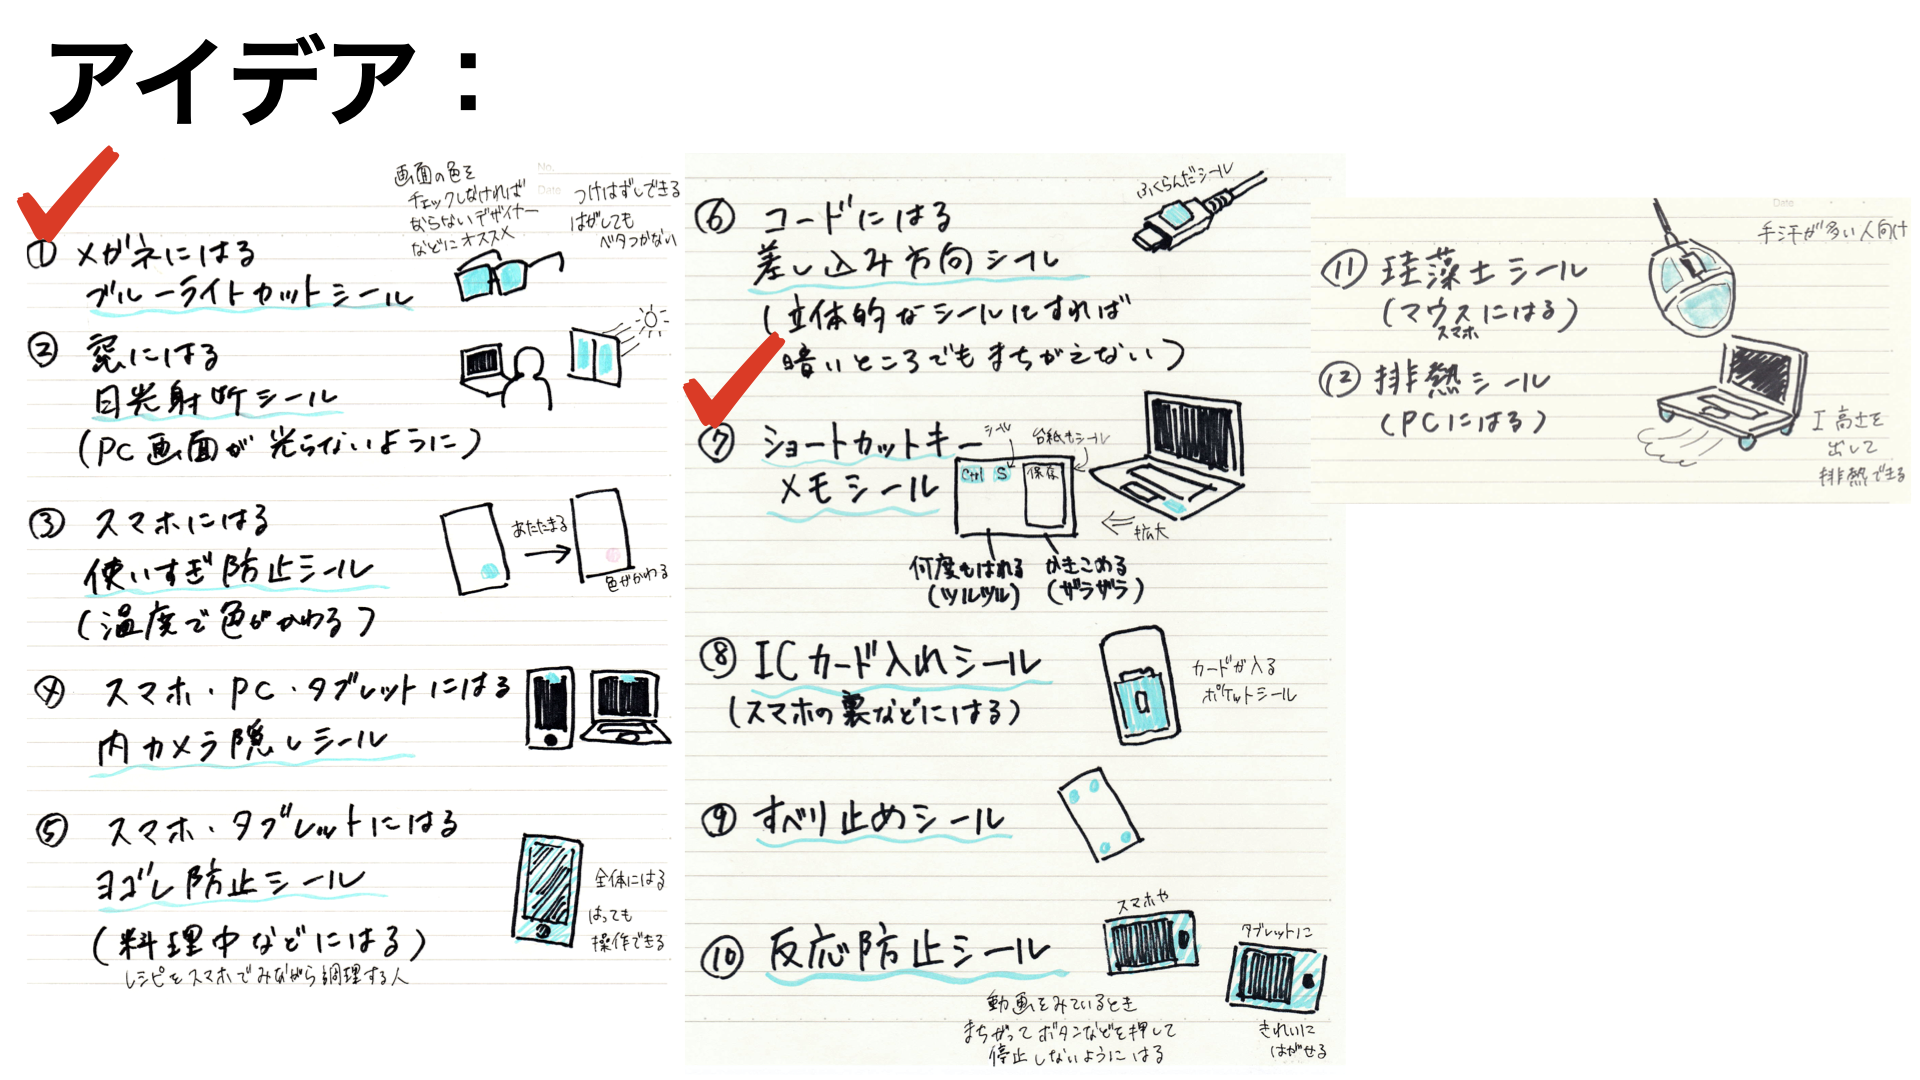 アイデア：
画面の色を
チェックしなければ
ならないデザイナー
などにオススメ
No.
Date
つけはずしできる
はがしても
ベタつかない
① メガネにはる
ブルーライトカットシール
② 窓にはる
日光射断シール
(PC画面が光らないように)
③ スマホにはる
使いすぎ防止シール
(温度で色がかわる)
あたたまる
色がかわる
④ スマホ・PC・タブレットにはる
内カメラ隠しシール
⑤ スマホ・タブレットにはる
ヨゴレ防止シール
(料理中などにはる)
レシピをスマホでみながら調理する人
全体にはる
はっても
操作できる
⑥ コードにはる
差し込み方向シール
(立体的なシールにすれば
暗いところでもまちがえない)
ふくらんだシール
⑦ ショートカットキー
メモシール
シール
台紙もシール
Ctrl S 保存
拡大
何度もはれる
(ツルツル)
かきこめる
(ザラザラ)
⑧ ICカード入れシール
(スマホの裏などにはる)
カードが入る
ポケットシール
⑨ すべり止めシール
⑩ 反応防止シール
スマホや
タブレットに
動画をみているとき
まちがってボタンなどを押して
停止しないようにはる
きれいに
はがせる
Date
手汗が多い人向け
⑪ 珪藻土シール
(マウスにはる)
スマホ
⑫ 排熱シール
(PCにはる)
高さを
出して
排熱できる